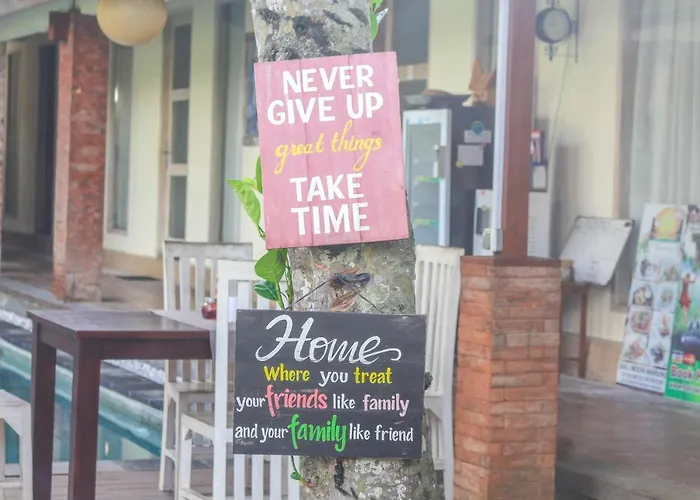 NEVER
GIVE UP
great things
TAKE
TIME
Home
Where you treat
your friends like family
and your family like friend